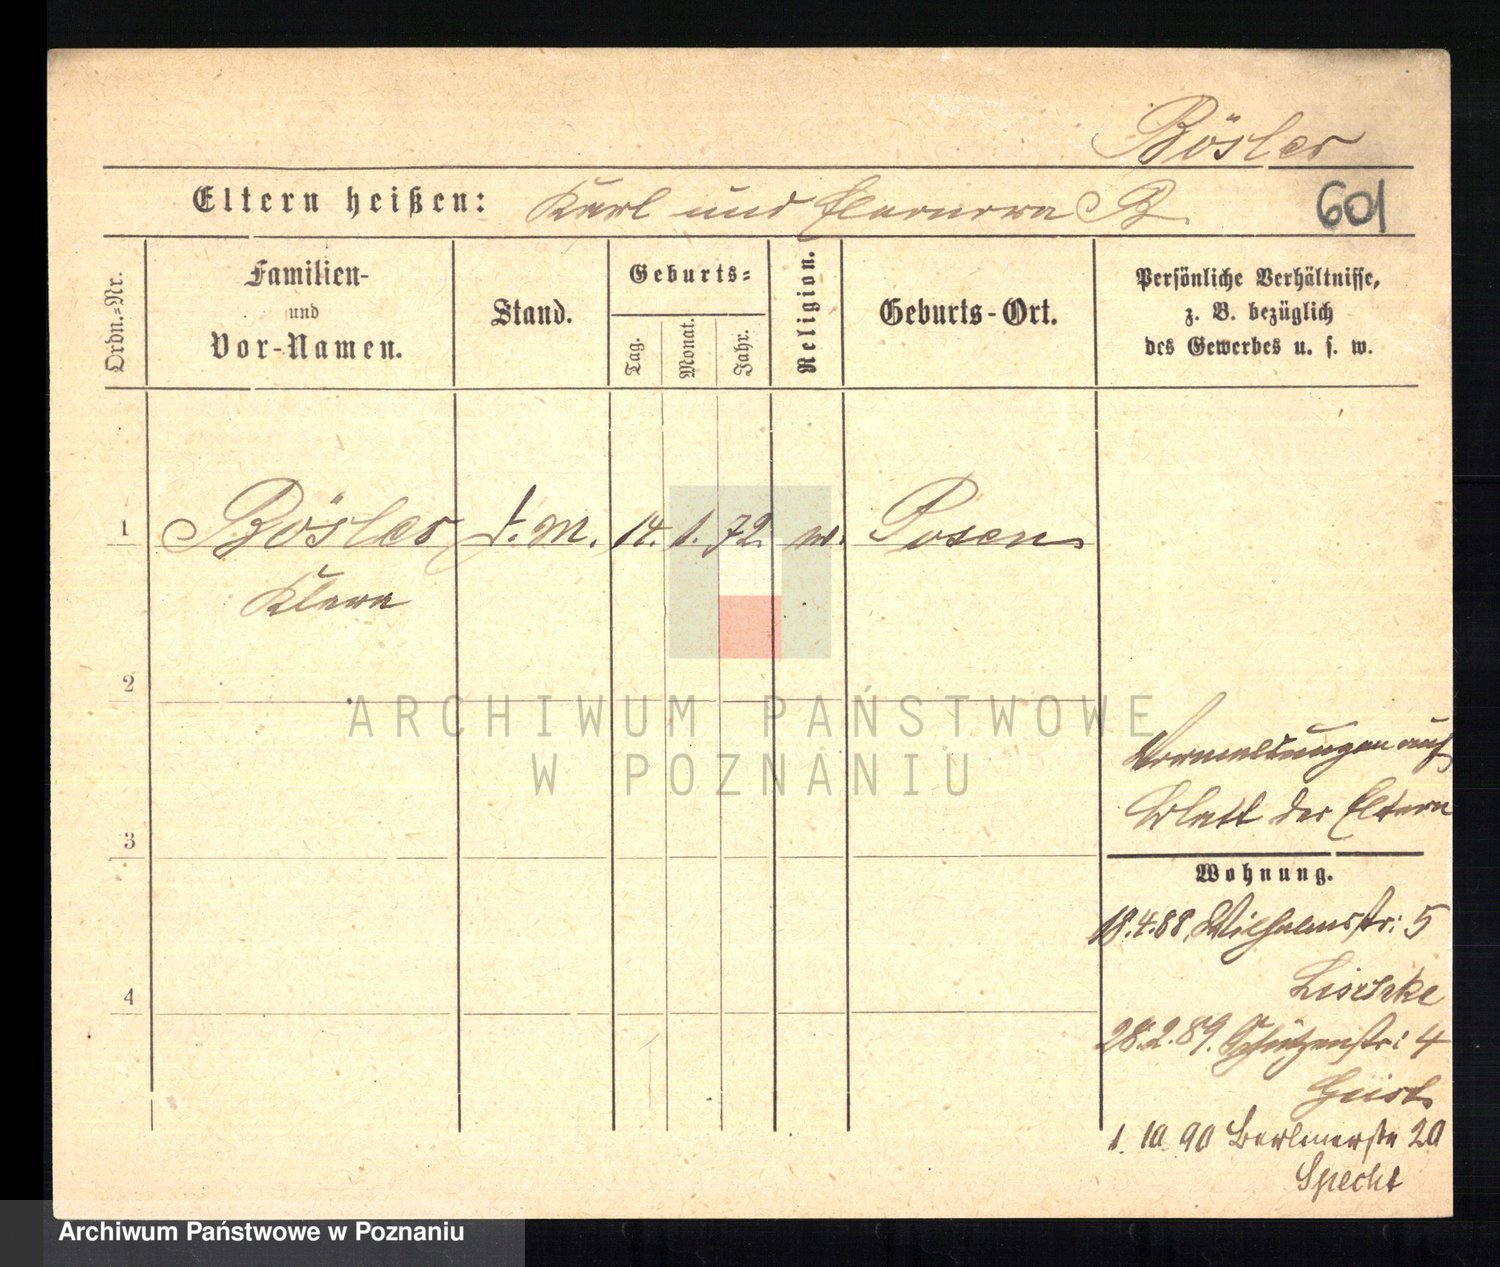 Bösler
Eltern heißen: Karl und Eleonora B.
601
Ordn.=Nr.
Familien-
und
Vor-Namen.
Stand.
Geburts=
Tag.
Monat.
Jahr.
Religion.
Geburts-Ort.
Persönliche Verhältnisse,
z. B. bezüglich
des Gewerbes u. s. w.
1 Bösler d. M. 14. 1. 72. Posen
Klara
2
3
4
Vormeldungen auf
Blatt der Eltern
Wohnung.
18.4.88. Wilhelmstr: 5
28.2.89. Schützenstr: 4
1. 10. 90 Berlinerstr 20
Specht
ARCHIWUM PAŃSTWOWE
W POZNANIU
Archiwum Państwowe w Poznaniu